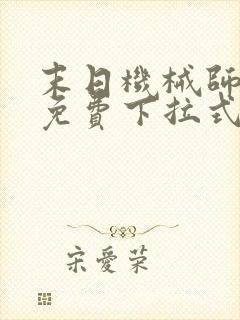 末日機械師
免費下拉式
宋愛荣